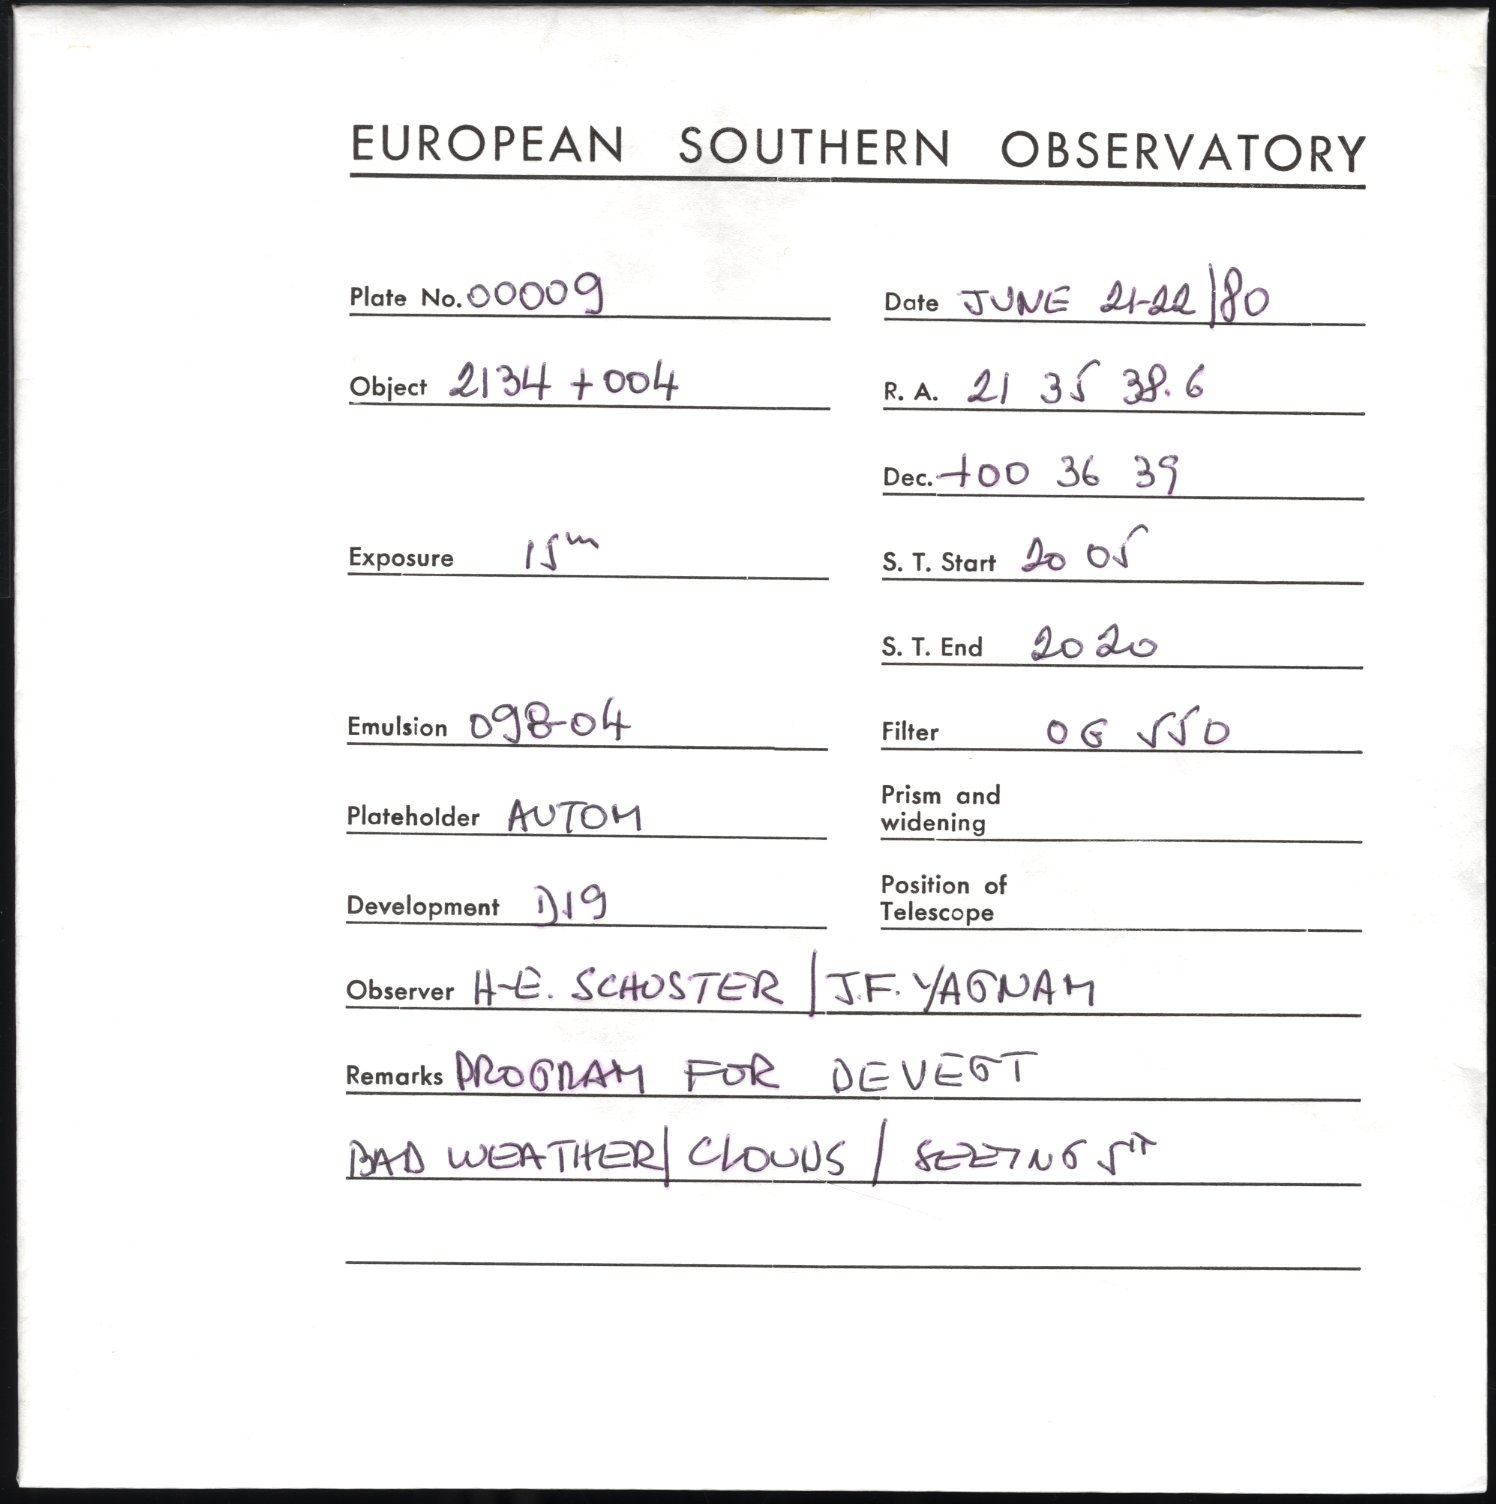 EUROPEAN SOUTHERN OBSERVATORY
Plate No. 00009 Date JUNE 21-22/80
Object 2134 +004 R. A. 21 35 38.6
Dec. +00 36 39
Exposure 15m S. T. Start 20 05
S. T. End 20 20
Emulsion 098-04 Filter OG 550
Plateholder AUTOM Prism and widening
Development D19 Position of Telescope
Observer H-E. SCHUSTER / J.F. YAGNAM
Remarks PROGRAM FOR DEVEGT
BAD WEATHER / CLOUDS / SEEING 5"